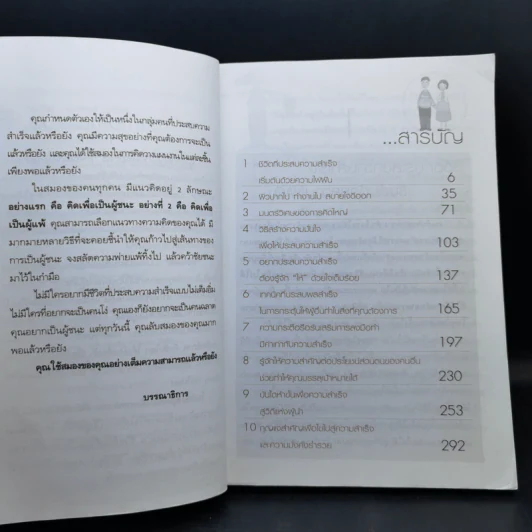 คุณกำหนดตัวเองให้เป็นหนึ่งในกลุ่มคนที่ประสบความ
สำเร็จแล้วหรือยัง คุณมีความสุขอย่างที่คุณต้องการจะเป็น
แล้วหรือยัง และคุณได้ใช้สมองในการคิดวางแผนงานในแต่ละขั้น
เพียงพอแล้วหรือยัง
ในสมองของคนทุกคน มีแนวคิดอยู่ 2 ลักษณะ
อย่างแรก คือ คิดเพื่อเป็นผู้ชนะ อย่างที่ 2 คือ คิดเพื่อ
เป็นผู้แพ้ คุณสามารถเลือกแนวทางความคิดของคุณได้ มี
มากมายหลายวิธีที่จะคอยชี้นำให้คุณก้าวไปสู่เส้นทางของ
การเป็นผู้ชนะ จงสลัดความพ่ายแพ้ทิ้งไป แล้วคว้าชัยชนะ
มาไว้ในกำมือ
ไม่มีใครอยากมีชีวิตที่ประสบความสำเร็จแบบไม่เต็มอิ่ม
ไม่มีใครที่อยากจะเป็นคนโง่ คุณเองก็ยังอยากจะเป็นคนฉลาด
คุณอยากเป็นผู้ชนะ แต่ทุกวันนี้ คุณลับสมองของคุณมาก
พอแล้วหรือยัง
คุณใช้สมองของคุณอย่างเต็มความสามารถแล้วหรือยัง
บรรณาธิการ
...สารบัญ
1 ชีวิตที่ประสบความสำเร็จ
เริ่มต้นด้วยความใฝ่ฝัน 6
2 35
3 มนตร์วิเศษของการคิดใหญ่ 71
4 วิธีสร้างความมั่นใจ
เพื่อให้ประสบความสำเร็จ 103
5 อยากประสบความสำเร็จ
ต้องรู้จัก "ให้" ด้วยใจเต็มร้อย 137
6 เทคนิคที่ประสบผลสำเร็จ
ในการกระตุ้นให้ผู้อื่นทำในสิ่งที่คุณต้องการ 165
7 ความกระตือรือร้นเสริมการลงมือทำ
มีค่าเท่ากับความสำเร็จ 197
8 รู้จักให้ความสำคัญต่อประโยชน์ส่วนตนของคนอื่น
ช่วยทำให้คุณบรรลุเป้าหมายได้ 230
9 บันไดห้าขั้นเพื่อความสำเร็จ
สู่วิถีแห่งผู้นำ 253
10 กุญแจสำคัญเพื่อไปในสู่ความสำเร็จ
และความมั่งคั่งร่ำรวย 292